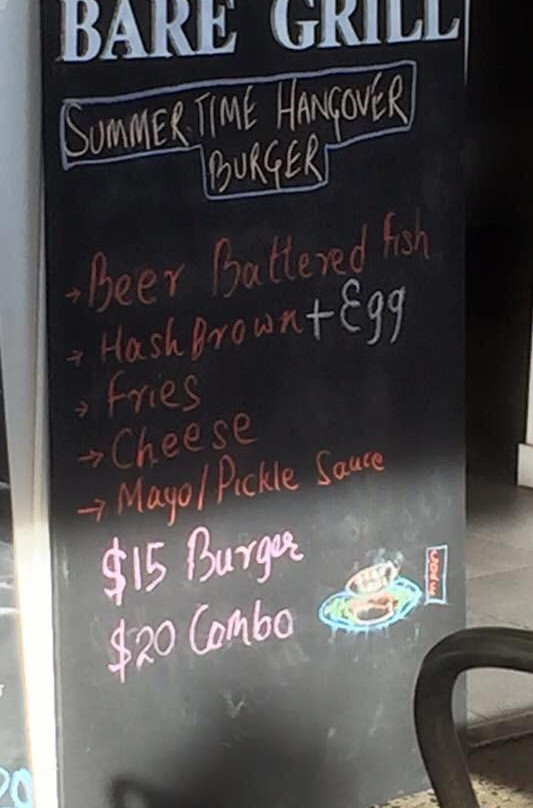 BARE GRILL
SUMMER TIME HANGOVER
BURGER
→ Beer Battered fish
→ Hash Brown + Egg
→ Fries
→ Cheese
→ Mayo/Pickle Sauce
$15 Burger
$20 Combo